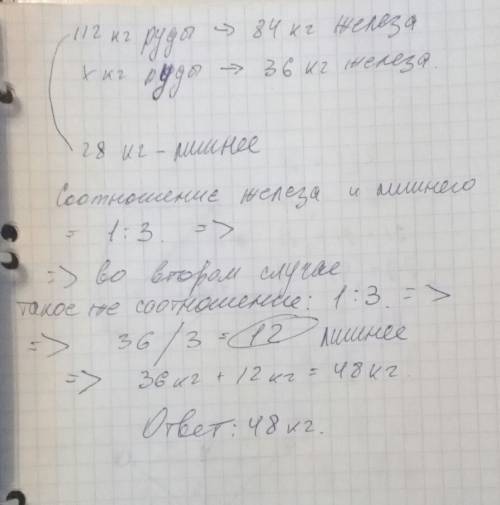 112 кг руды → 84 кг железа
x кг руды → 36 кг железа.
28 кг - лишнее
Соотношение железа и лишнего
= 1:3. =>
=> во втором случае
такое же соотношение: 1:3. =>
=> 36/3 = 12 лишнее
=> 36кг + 12кг = 48кг.
Ответ: 48кг.